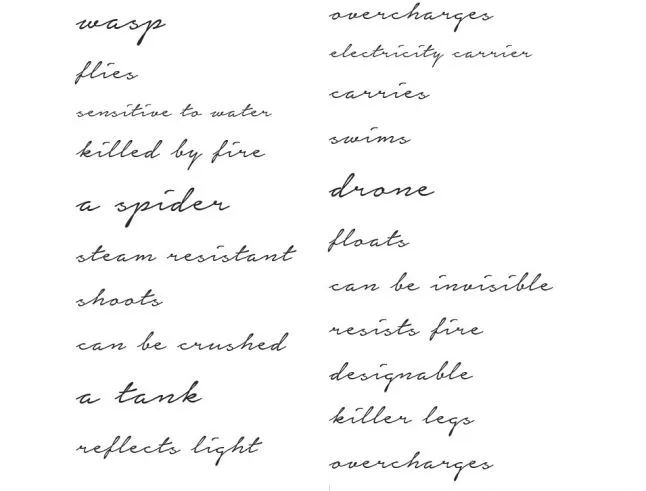 wasp
flies
sensitive to water
killed by fire
a spider
steam resistant
shoots
can be crushed
a tank
reflects light
overcharges
electricity carrier
carries
swims
drone
floats
can be invisible
resists fire
designable
killer legs
overcharges